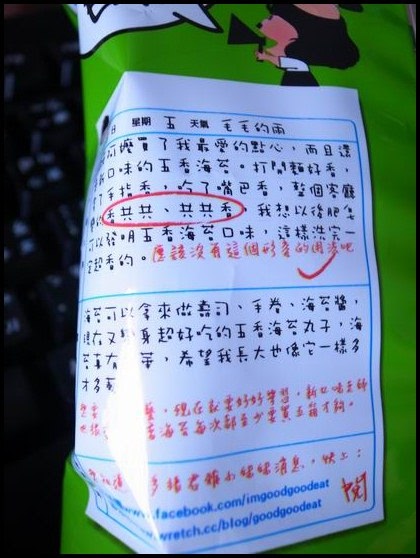 日 星期 五 天氣 毛毛的雨
買了我最愛的點心，而且還
口味的五香海苔。打開麵好香，
了手指香，吃了嘴巴香，整個客廳
香共共、共共香，我想以後肥皂
可以發明五香海苔口味，這樣洗完一
定超香的。應該沒有這個形容的用法吧
海苔可以拿來做壽司、手卷、海苔醬，
身超好吃的五香海苔丸子，海
苔事大 帶，希望我長大也像它一樣多
才多藝
要 藝，現在就要好好學習，
海苔每次都至少要買五箱才夠。
多諸君雅小妹妹消息，快上：
www.facebook.com/imgoodgoodeat
wretch.cc/blog/goodgoodeat
閱